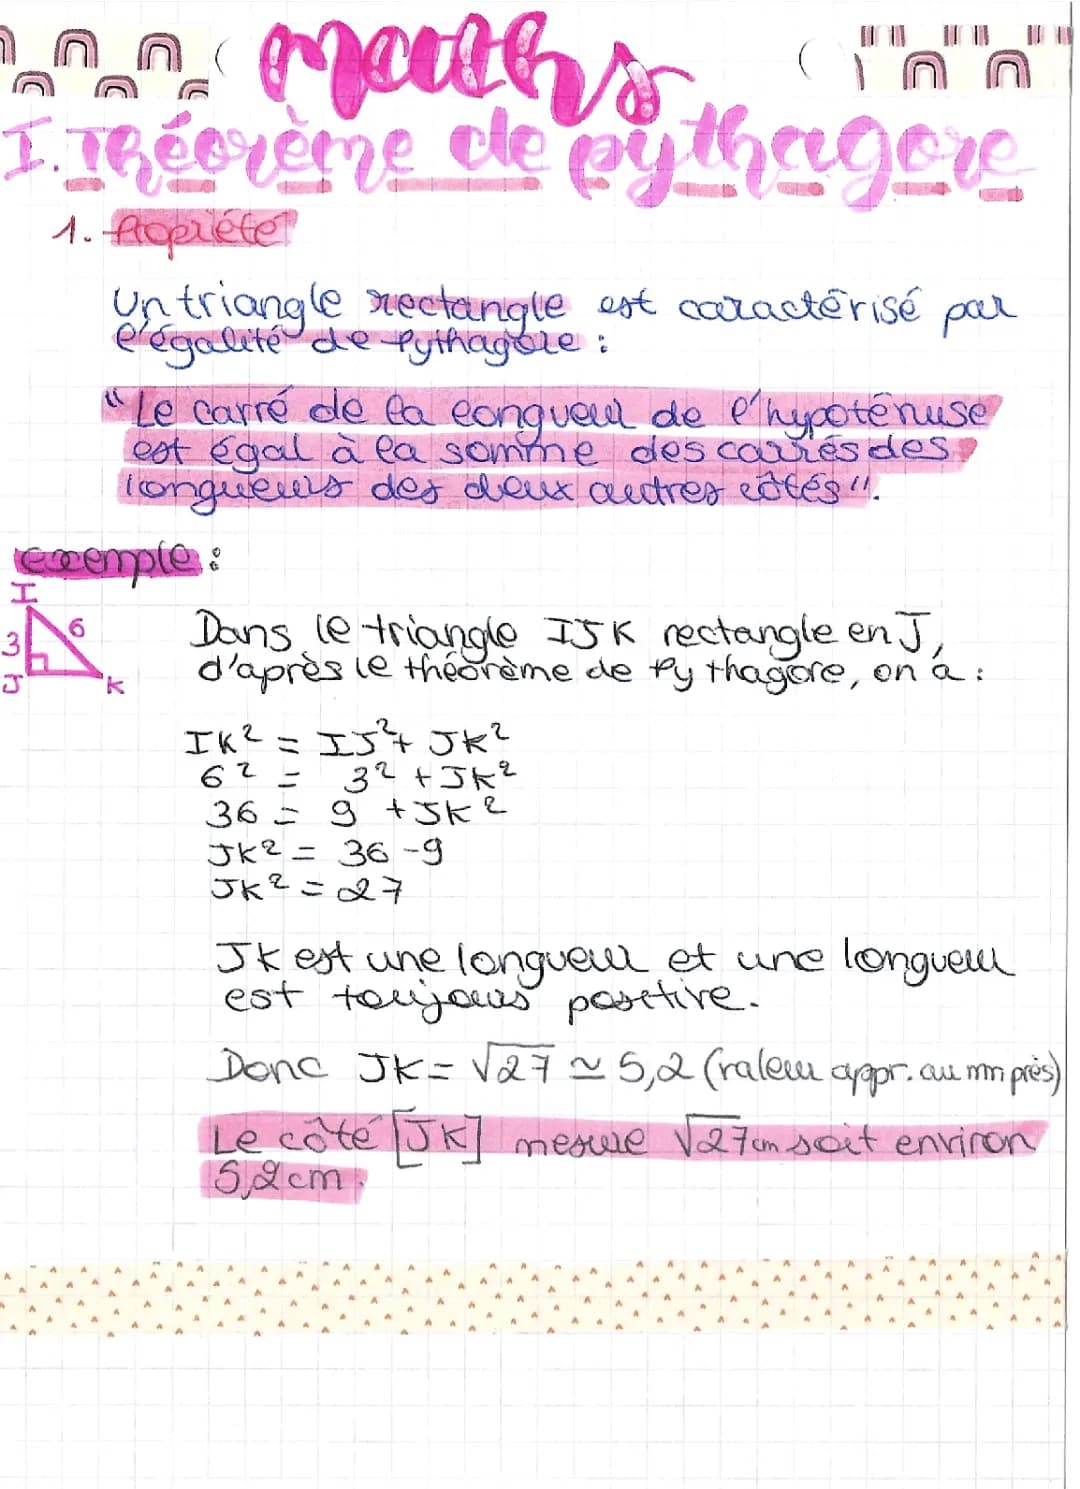 Maths
I. Théorème de pythagore
1. Propriété
Un triangle rectangle est caractérisé par
l'égalité de Pythagore :
"Le carré de la longueur de l'hypoténuse
est égal à la somme des carrés des
longueurs des deux autres côtés".
exemple :
I
3 6
J K
Dans le triangle IJK rectangle en J,
d'après le théorème de Pythagore, on a :
IK² = IJ² + JK²
6² = 3² + JK²
36 = 9 + JK²
JK² = 36 - 9
JK² = 27
JK est une longueur et une longueur
est toujours positive.
Donc JK = √27 ≃ 5,2 (valeur appr. au mm près)
Le côté [JK] mesure √27cm soit environ
5,2cm.